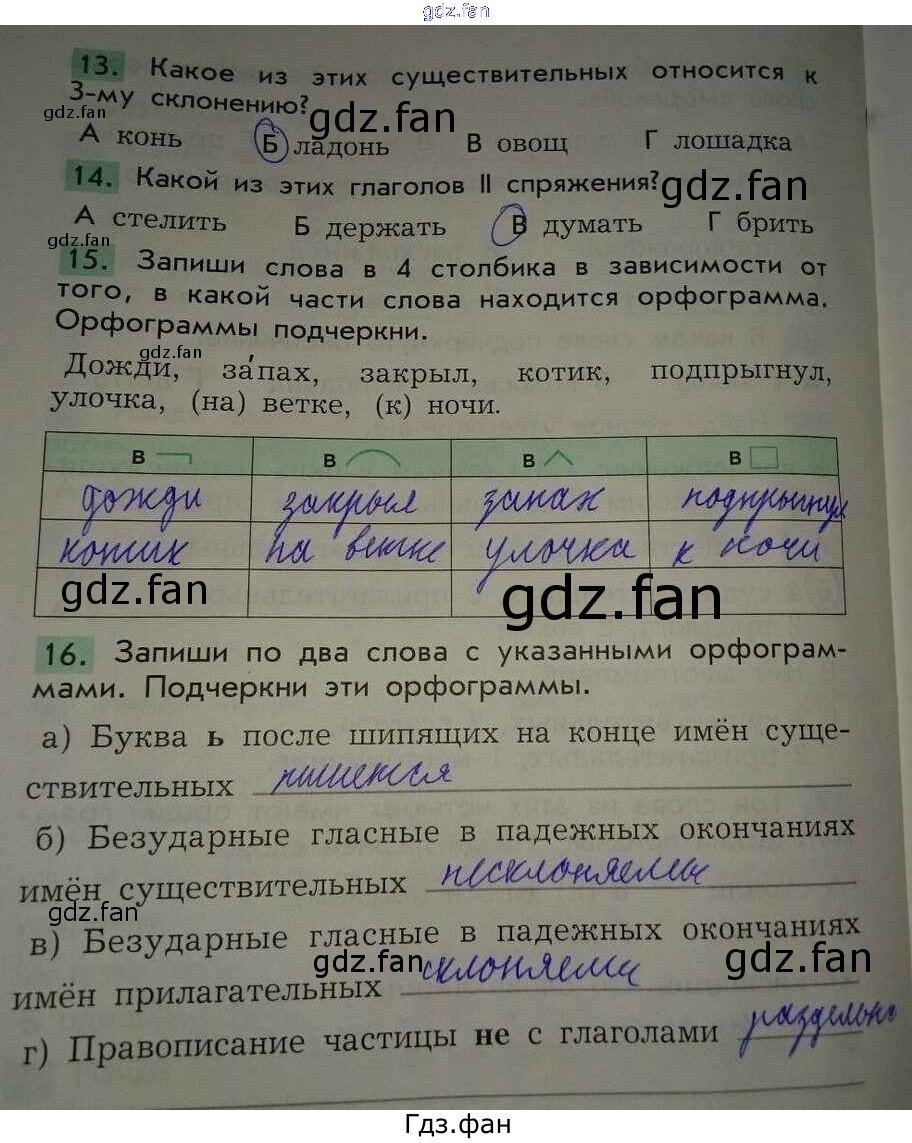 gdz.fan
13. Какое из этих существительных относится к
3-му склонению?
gdz.fan
gdz.fan
А конь Б ладонь В овощ Г лошадка
14. Какой из этих глаголов II спряжения?
gdz.fan
А стелить Б держать В думать Г брить
gdz.fan
15. Запиши слова в 4 столбика в зависимости от
того, в какой части слова находится орфограмма.
Орфограммы подчеркни.
gdz.fan
Дожди, за́пах, закрыл, котик, подпрыгнул,
улочка, (на) ветке, (к) ночи.
в в в в
дожди закрыл запах подпрыгнул
котик на ветке улочка к ночи
gdz.fan gdz.fan
16. Запиши по два слова с указанными орфограм-
мами. Подчеркни эти орфограммы.
а) Буква ь после шипящих на конце имён суще-
ствительных пишется
б) Безударные гласные в падежных окончаниях
имён существительных несклоняемы
gdz.fan
в) Безударные гласные в падежных окончаниях
gdz.fan gdz.fan
имён прилагательных склоняеми
г) Правописание частицы не с глаголами раздельно
Гдз.фан